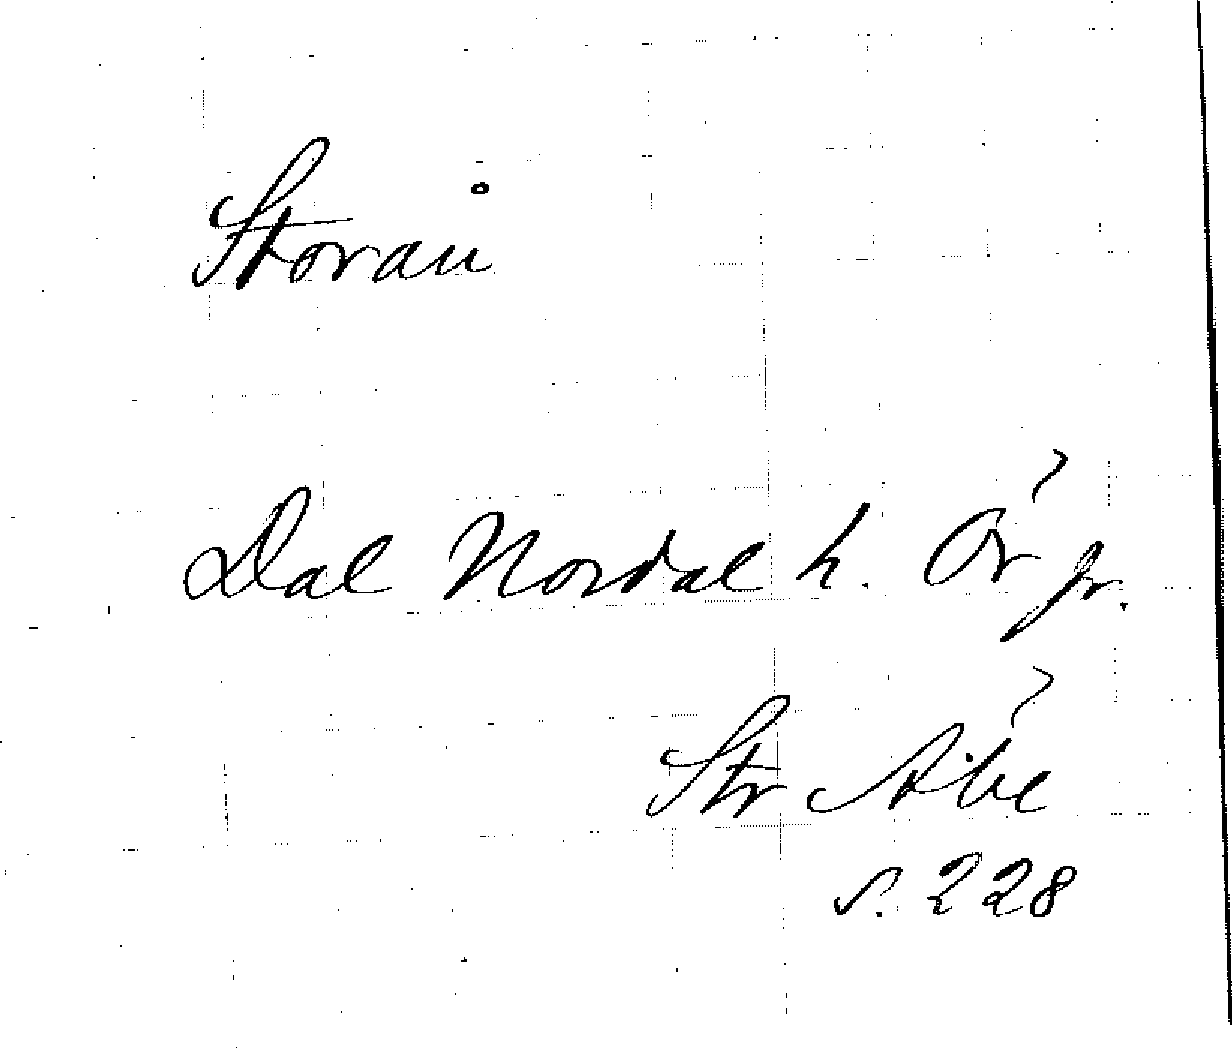 Storån
Dal Nordal h. Ör
Str
s. 228